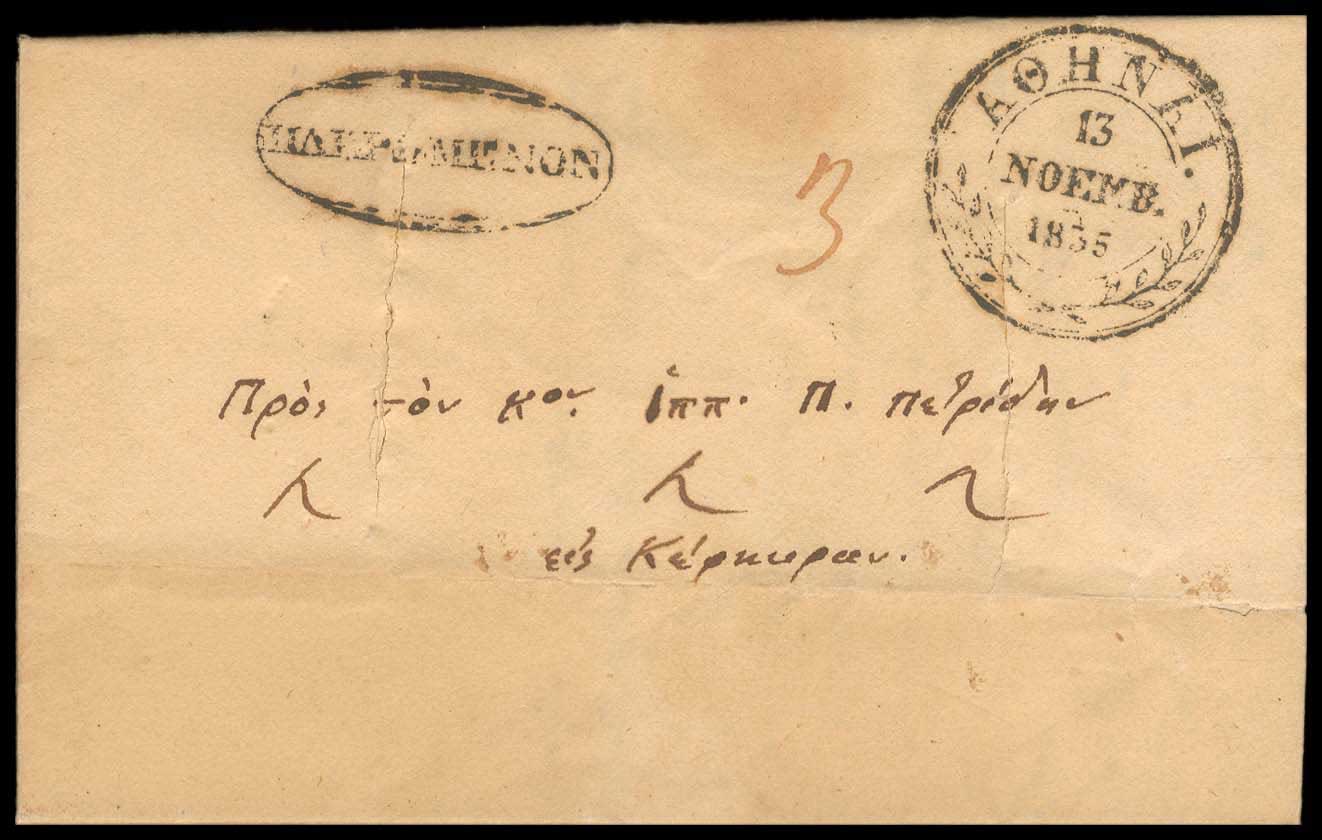 ΠΛΗΡΩΜΕΝΟΝ
ΑΘΗΝΑΙ.
13
ΝΟΕΜΒ.
1835
3
Πρὸς τὸν κον. Ἱππ. Π. Πετρίδην
εἰς Κέρκυραν.